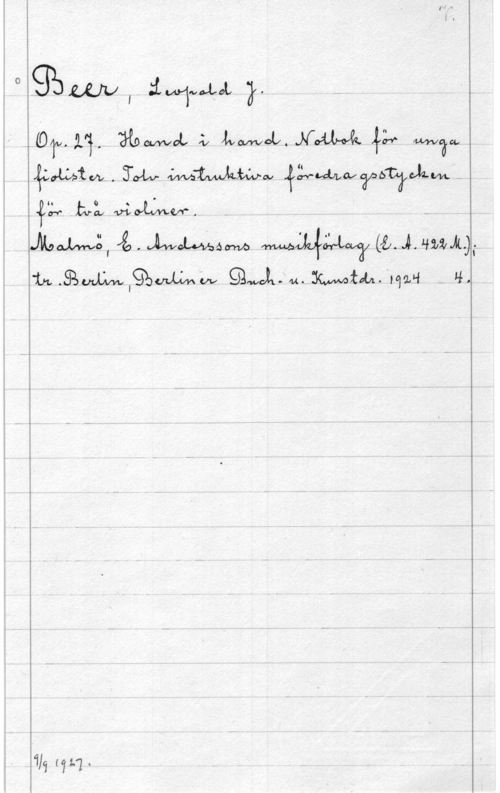 Beer, Leopold J.
Op. 27. Hand i hand. Notbok för unga
fiolister. Tolv instruktiva föredragsstycken
för två violiner.
Malmö, E. Anderssons musikförlag (E. A. 422 M.);
tr. Berlin, Berliner Buch- u. Kunstdr. 1924 4.
9/9 1927.